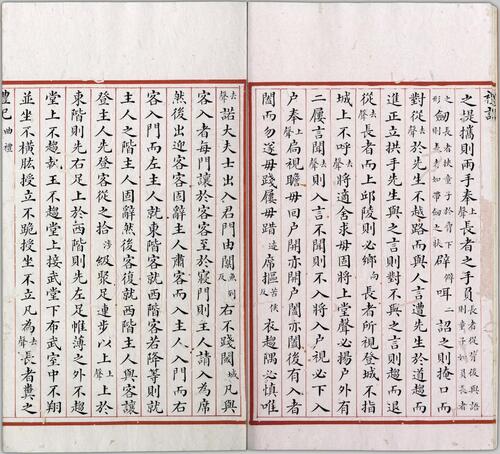 禮記
之提攜則兩手奉上聲長者之手負長者從背後與語則童子如負長者
之長者扶童子於脅下形劒則者如帶劒之狀辟僻咡二詔之則掩口而
對從去聲於先生不越路而與人言遭先生於道趨而
進正立拱手先生與之言則對不與之言則趨而退
從去聲長者而上邱陵則必鄉向長者所視登城不指
城上不呼去聲將適舍求毋固將上堂聲必揚戶外有
二屨言聞去聲則入言不聞則不入將入戶視必下入
戶奉上聲扃視瞻毋回戶開亦開戶闔亦闔後有入者
闔而勿遂毋踐屨毋踖席摳苦侯反衣趨隅必慎唯
去聲諾大夫士出入君門由闑魚列反右不踐閾域凡與
客入者每門讓於客客至於寢門則主人請入為席
然後出迎客客固辭主人肅客而入主人入門而右
客入門而左主人就東階客就西階客若降等則就
主人之階主人固辭然後客復就西階主人與客讓
登主人先登客從之拾涉級聚足連步以上上聲上於
東階則先右足上於西階則先左足帷薄之外不趨
堂上不趨執玉不趨堂上接武堂下布武室中不翔
並坐不橫肱授立不跪授坐不立凡為去聲長者糞之
禮記 曲禮